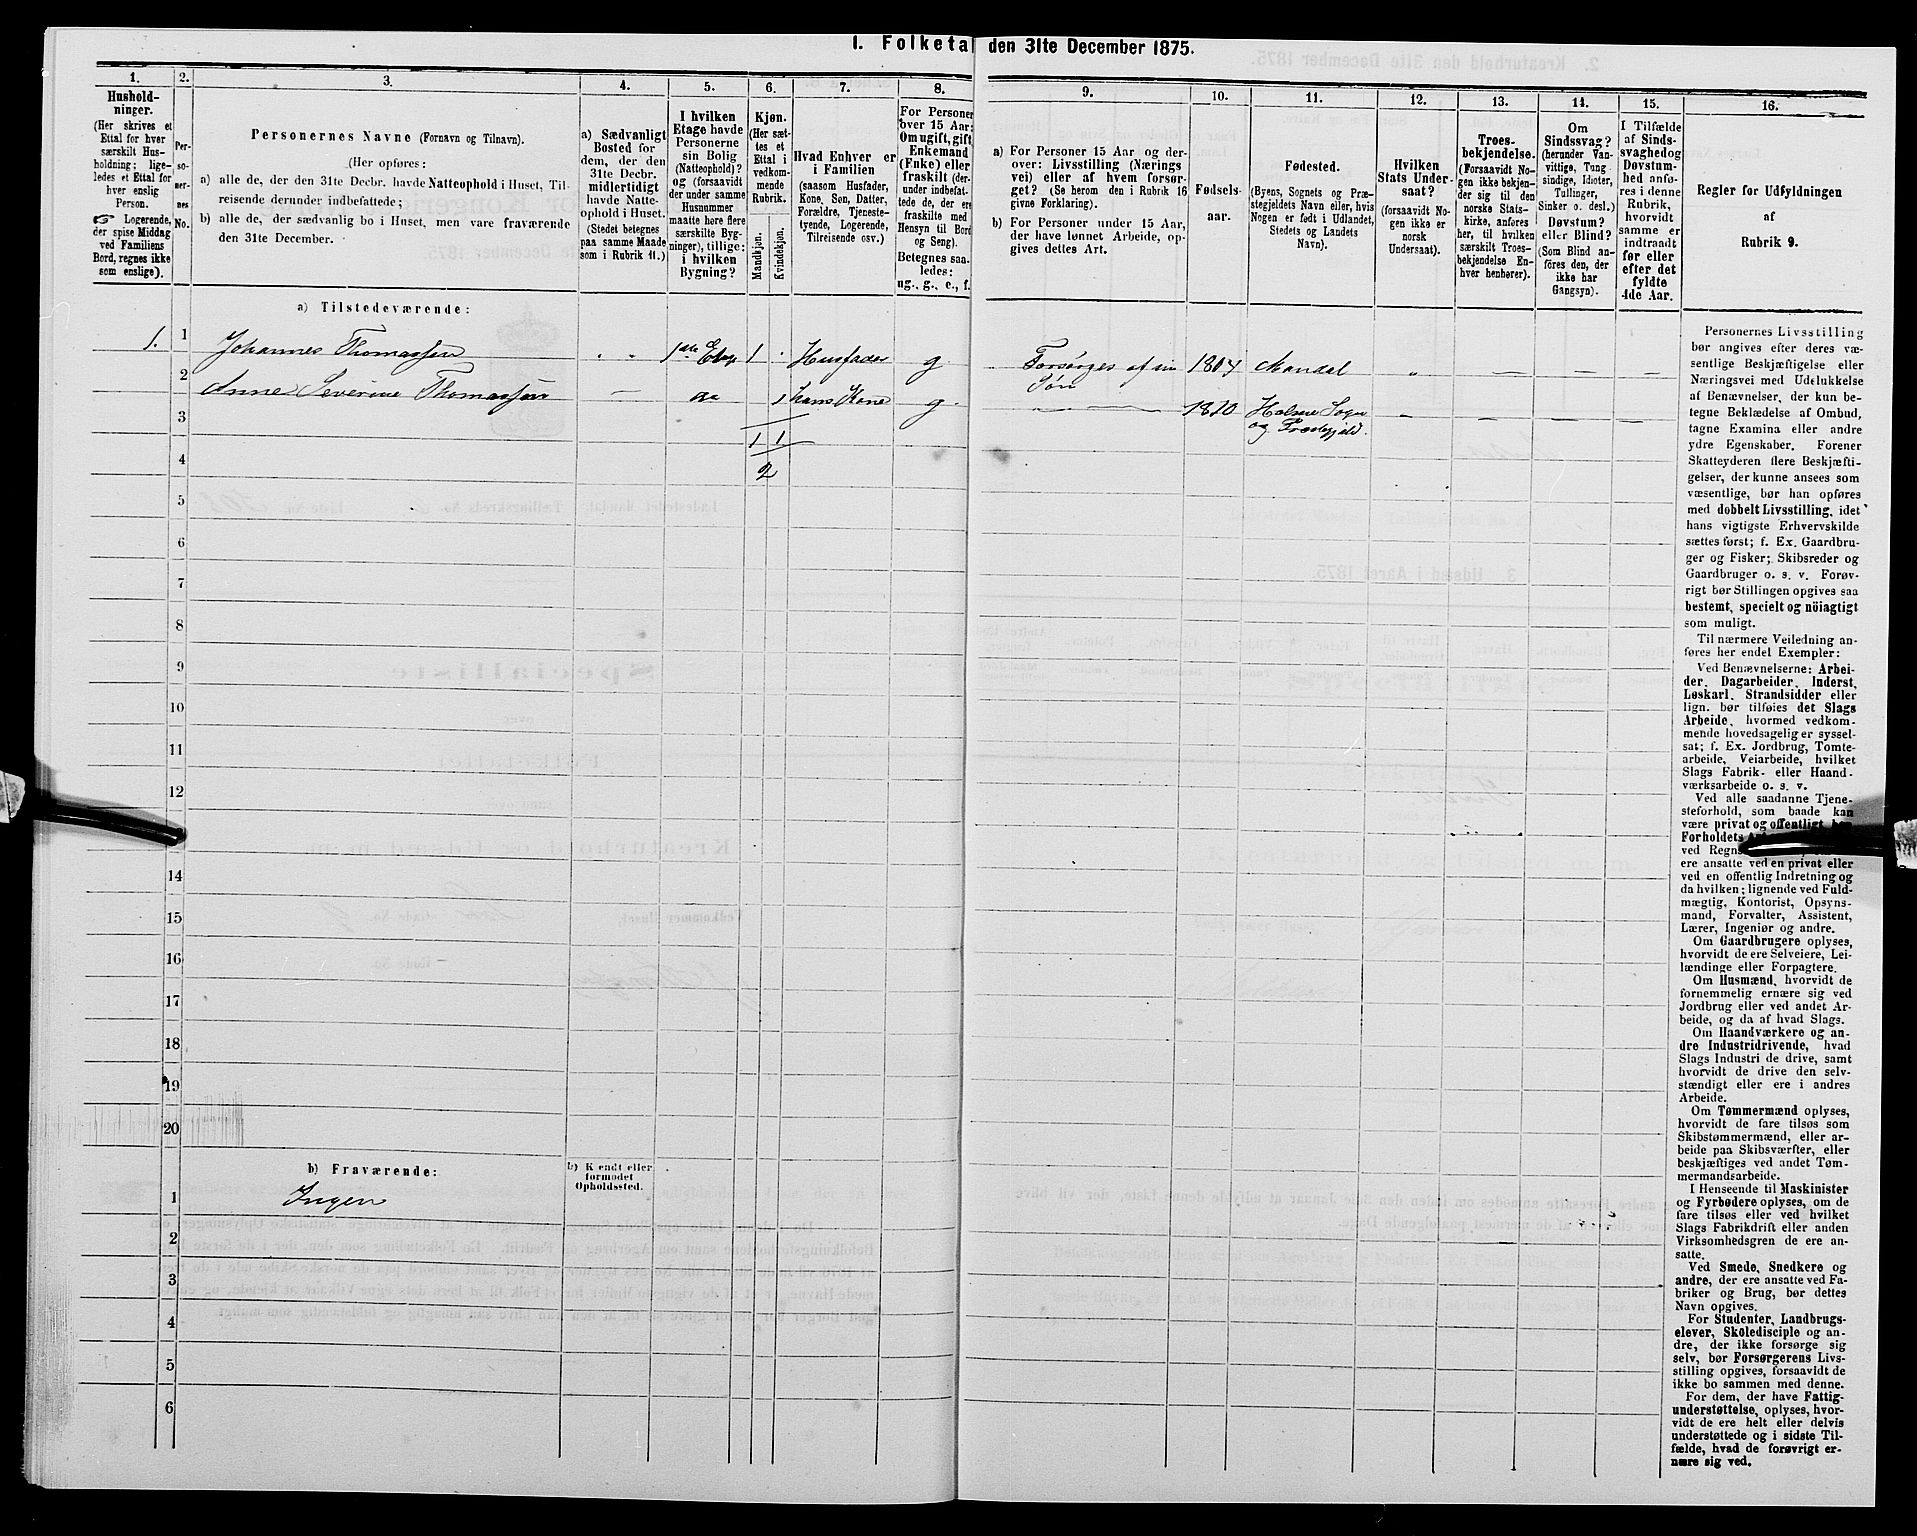 1. Folketal den 31te December 1875.
1.
Hushold-
ninger.
(Her skrives et
Ettal for hver
særskilt Hus-
holdning; lige-
ledes et Ettal for
hver enslig
Person.
☞ Logerende,
der spise Middag
ved Familiens
Bord, regnes ikke
som enslige).
2.
Per-
so-
ner-
nes
No.
3.
Personernes Navne (Fornavn og Tilnavn).
(Her opføres:
a) alle de, der den 31te Decbr. havde Natteophold i Huset, Til-
reisende derunder indbefattede;
b) alle de, der sædvanlig bo i Huset, men vare fraværende
den 31te December.
4.
a) Sædvanligt
Bosted for
dem, der den
31te Decbr.
midlertidigt
havde Natte-
ophold i Huset.
(Stedet betegnes
paa samme Maade
som i Rubrik 11.)
5.
I hvilken
Etage havde
Personerne
sin Bolig
(Natteophold)?
og (forsaavidt
der under samme
Husnummer
maatte høre flere
særskilte Byg-
ninger), tillige:
i hvilken
Bygning?
6.
Kjøn.
(Her sæt-
tes et
Ettal i
vedkom-
mende
Rubrik.
Mandkjøn.
Kvindekjøn.
7.
Hvad Enhver er
i Familien
(saasom Husfader,
Kone, Søn, Datter,
Forældre, Tjeneste-
tyende, Logerende,
Tilreisende osv.)
8.
For Personer
over 15 Aar:
Om ugift, gift,
Enkemand
(Enke) eller
fraskilt (der-
under indbefat-
tede de, der ere
fraskilte med
Hensyn til Bord
og Seng).
Betegnes saa-
ledes:
ug., g., e., f.
9.
a) For Personer 15 Aar og der-
over: Livsstilling (Nærings
vei) eller af hvem forsør-
get? (Se herom den i Rubrik 16
givne Forklaring).
b) For Personer under 15 Aar,
der have lønnet Arbeide, op-
gives dettes Art.
10.
Fødsels-
aar.
11.
Fødested.
(Byens, Sognets og Præ-
stegjeldets Navn eller, hvis
Nogen er født i Udlandet,
Stedets og Landets
Navn).
12.
Hvilken
Stats Under-
saat?
(forsaavidt No-
gen ikke er
norsk
Undersaat).
13.
Troes-
bekjendelse.
(Forsaavidt No-
gen ikke bekjen-
der sig til den
norske Stats-
kirke, anføres
her, til hvilken
særskilt Troes-
bekjendelse En-
hver henhører).
14.
Om
Sindssvag?
(herunder Van-
vittige, Tung
sindige, Idioter,
Tullinger,
Sinker o. desl.)
Døvstum?
eller Blind?
(Som Blind an-
föres den, der
ikke har
Gangsyn).
15.
I Tilfælde
af Sinds-
svaghed og
Døvstum-
hed anfø-
res i denne
Rubrik,
hvorvidt
samme er
indtraadt
før eller
efter det
fyldte
4de Aar.
16.
Regler for Udfyldningen
af
Rubrik 9.
a) Tilstedeværende:
1. 1 Johannes Thomassen " " 1ste Etag 1 " Husfader g. Forsørges af sin Søn 1804 Mandal " — — —
2 Anne Severine Thomassen — do 1 hans Kone g. — — 1810 Halsne Sogn og Præstegjeld. — — — —
3 1 1
4 2
5
6
7
8
9
10
11
12
14
15
16
17
18
19
20
b) Fraværende:
b) Kjendt eller
formodet
Opholdssted.
1 Ingen
2
3
4
5
6
Personernes Livsstilling
bør angives efter deres væ-
sentlige Beskjæftigelse eller
Næringsvei med Udelukkelse
af Benævnelser, der kun be-
tegne Beklædelse af Ombud,
tagne Examina eller andre
ydre Egenskaber. Forener
Skatteyderen flere Beskjæfti-
gelser, der kunne ansees som
væsentlige, bør han opføres
med dobbelt Livsstilling, idet
hans vigtigste Erhvervskilde
sættes først; f. Ex. Gaardbru-
ger og Fisker; Skibsreder og
Gaardbruger o. s. v. Forøv-
rigt bør Stillingen opgives saa
bestemt, specielt og nöiagtigt
som muligt.
Til nærmere Veiledning an-
føres her endel Exempler:
Ved Benævnelserne: Arbei-
der, Dagarbeider, Inderst,
Løskarl, Strandsidder eller
lign. bør tilføies det Slags
Arbeide, hvormed vedkom-
mende hovedsagelig er syssel-
sat; f. Ex. Jordbrug, Tomte-
arbeide, Veiarbeide, hvilket
Slags Fabrik- eller Haand-
værksarbeide o. s. v.
Ved alle saadanne Tjene-
steforhold, som baade kan
være privat og offentligt, bør
Forholdets
ved Regns
ere ansatte ved en privat eller
ved en offentlig Indretning og
da hvilken; lignende ved Fuld-
mægtig, Kontorist, Opsyns-
mand, Forvalter, Assistent,
Lærer, Ingeniør og andre.
Om Gaardbrugere oplyses,
hvorvidt de ere Selveiere, Lei-
lændinge eller Forpagtere.
Om Husmænd, hvorvidt de
fornemmelig ernære sig ved
Jordbrug eller ved andet Ar-
beide, og da af hvad Slags.
Om Haandværkere og an-
dre Industridrivende, hvad
Slags Industri de drive, samt
hvorvidt de drive den selv-
stændigt eller ere i andres
Arbeide.
Om Tømmermænd oplyses,
hvorvidt de fare tilsøs som
Skibstømmermænd, eller ar-
beide paa Skibsværfter, eller
beskjæftiges ved andet Tøm-
mermandsarbeide.
I Henseende til Maskinister
og Fyrbødere oplyses, om de
fare tilsøs eller ved hvilket
Slags Fabrikdrift eller anden
Virksomhedsgren de ere an-
satte.
Ved Smede, Snedkere og
andre, der ere ansatte ved Fa-
briker og Brug, bør dettes
Navn opgives.
For Studenter, Landbrugs-
elever, Skoledisciple og an-
dre, der ikke forsørge sig
selv, bør Forsørgerens Livs-
stilling opgives, forsaavidt de
ikke bo sammen med denne.
For dem, der have Fattig-
understøttelse, oplyses, hvor-
vidt de ere helt eller delvis
understøttede og i sidste Til-
fælde, hvad de forøvrigt er-
nære sig ved.